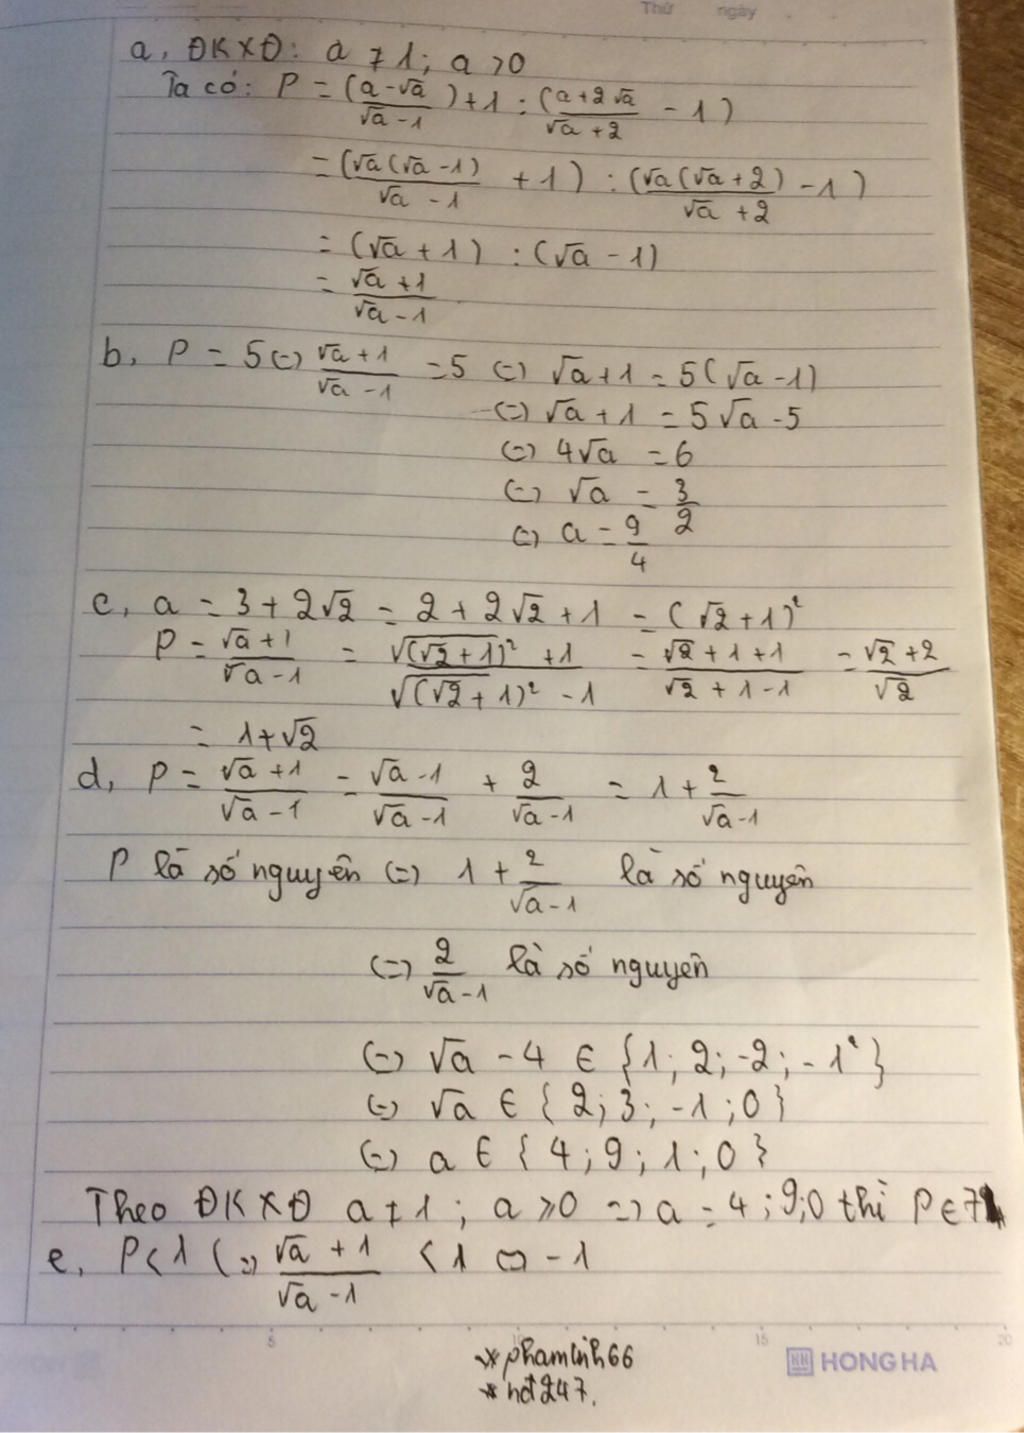 Thứ ngày
a, ĐKXĐ: a ≠ 1; a > 0
Ta có: P = (a-√a / √a-1) + 1 : (a+2√a / √a+2 - 1)
= (√a(√a-1) / √a-1 + 1) : (√a(√a+2) / √a+2 - 1)
= (√a+1) : (√a-1)
= √a+1 / √a-1
b, P = 5 (=) √a+1 / √a-1 = 5 (=) √a+1 = 5(√a-1)
(=) √a+1 = 5√a-5
(=) 4√a = 6
(=) √a = 3/2
(=) a = 9/4
c, a = 3+2√2 = 2+2√2+1 = (√2+1)²
P = √a+1 / √a-1 = √(√2+1)² +1 / √(√2+1)² -1 = √2+1+1 / √2+1-1 = √2+2 / √2
= 1+√2
d, P = √a+1 / √a-1 = √a-1 / √a-1 + 2 / √a-1 = 1 + 2 / √a-1
P là số nguyên (=) 1 + 2 / √a-1 là số nguyên
(=) 2 / √a-1 là số nguyên
(=) √a - 4 ∈ {1; 2; -2; -1}
(=) √a ∈ {2; 3; -1; 0}
(=) a ∈ {4; 9; 1; 0}
Theo ĐKXĐ a ≠ 1; a ≥ 0 => a = 4; 9; 0 thì P ∈
e, P < 1 (=) √a+1 / √a-1 < 1 <=> -1
5 10 15 20
*phamlinh66
*hđ247.
HONG HA